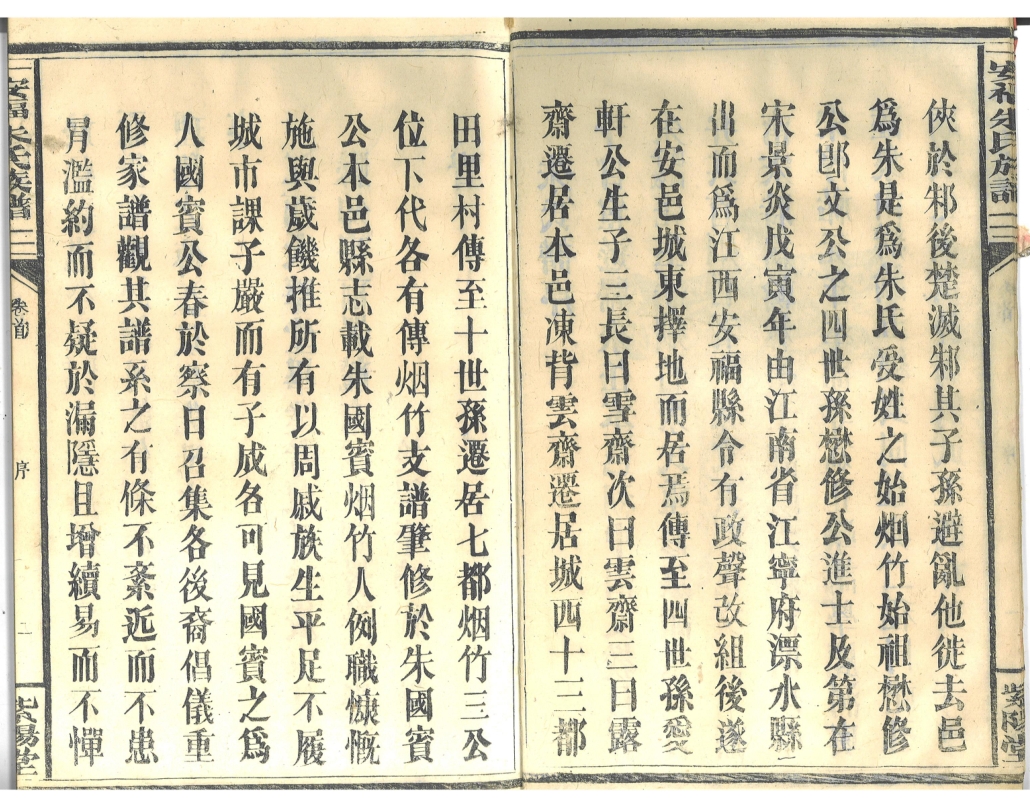 安福朱氏族譜
紫陽堂
俠於邾後楚滅邾其子孫避亂他徙去邑
爲朱是爲朱氏受姓之始烟竹始祖懋修
公卽文公之四世孫懋修公進士及第在
宋景炎戊寅年由江南省江寧府漂水縣
出而爲江西安福縣令有政聲改組後遂
在安邑城東擇地而居焉傳至四世孫愛
軒公生子三長曰雪齋次曰雲齋三曰露
齋遷居本邑凍背雲齋遷居城西四十三都
田里村傳至十世孫遷居七都烟竹三公
位下代各有傳烟竹支譜肇修於朱國賓
公本邑縣志載朱國賓烟竹人例職慷慨
施與歲饑推所有以周戚族生平足不履
城市課子嚴而有子成名可見國賓之爲
人國賓公春於祭日召集各後裔倡儀重
修家譜觀其譜系之有條不紊近而不患
冐濫約而不疑於漏隱且增續易而不憚
安福朱氏族譜
卷首
序
二
紫陽堂